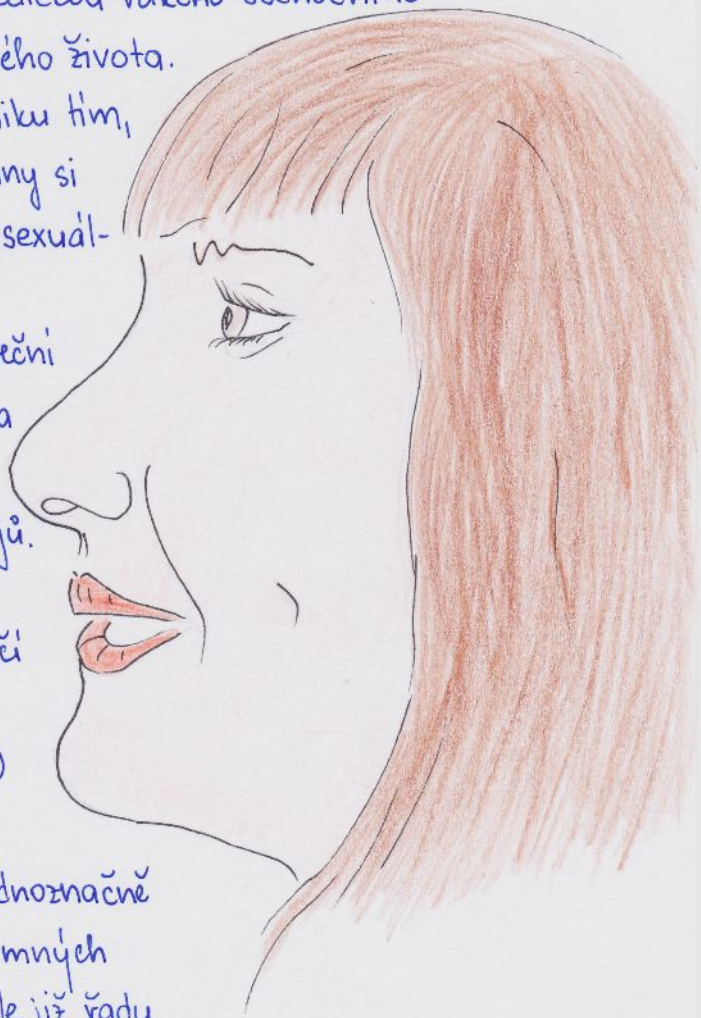 ého života.
iku tím,
ny si
sexuál-
eční
a
jů.
čí
)
dnoznačně
mných
le již řadu